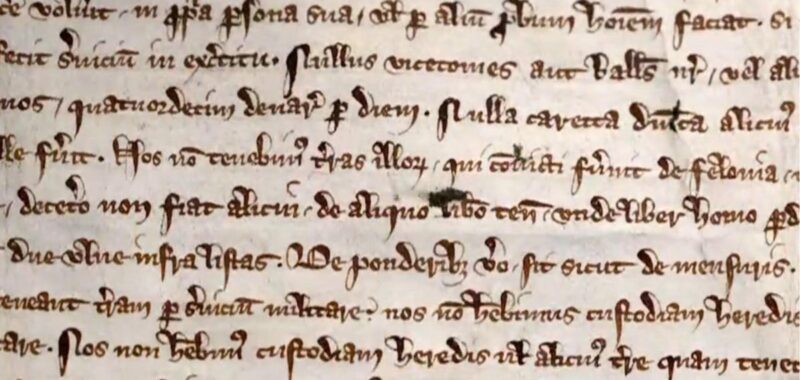 ce volu̅it · in ꝓp̲a ꝑsona sua, vł ꝑ aliu̅ ꝓbum ho̅iem faciat · si
fecit s̾uiciu̅ in ex̾citu. Nullus vicecomes aut Ballˉs nr̅, vel ali
nos, quatuordecim denar̾ ꝑ diem. Nulla caretta dn̅ica alicui⁹
lle fu̾it. Nos no̅ tenebim⁹ t̾ras illoꝝ, qui co̅uicti fu̾int de felonia,
, decet̾o non fiat alicui, de aliquo lib̾o ten̅, vnde liber homo ꝑd
due vlne infra listas. De ponderibꝫ v̾o, sit sicut de mensuris.
teneant t̾ram ꝑ s̾uiciu̅ militare: nos no̅ he̅bimus custodiam heredis
tare. Nos non he̅bim⁹ custodiam heredis vł alicui⁹ t̾re quam tenet